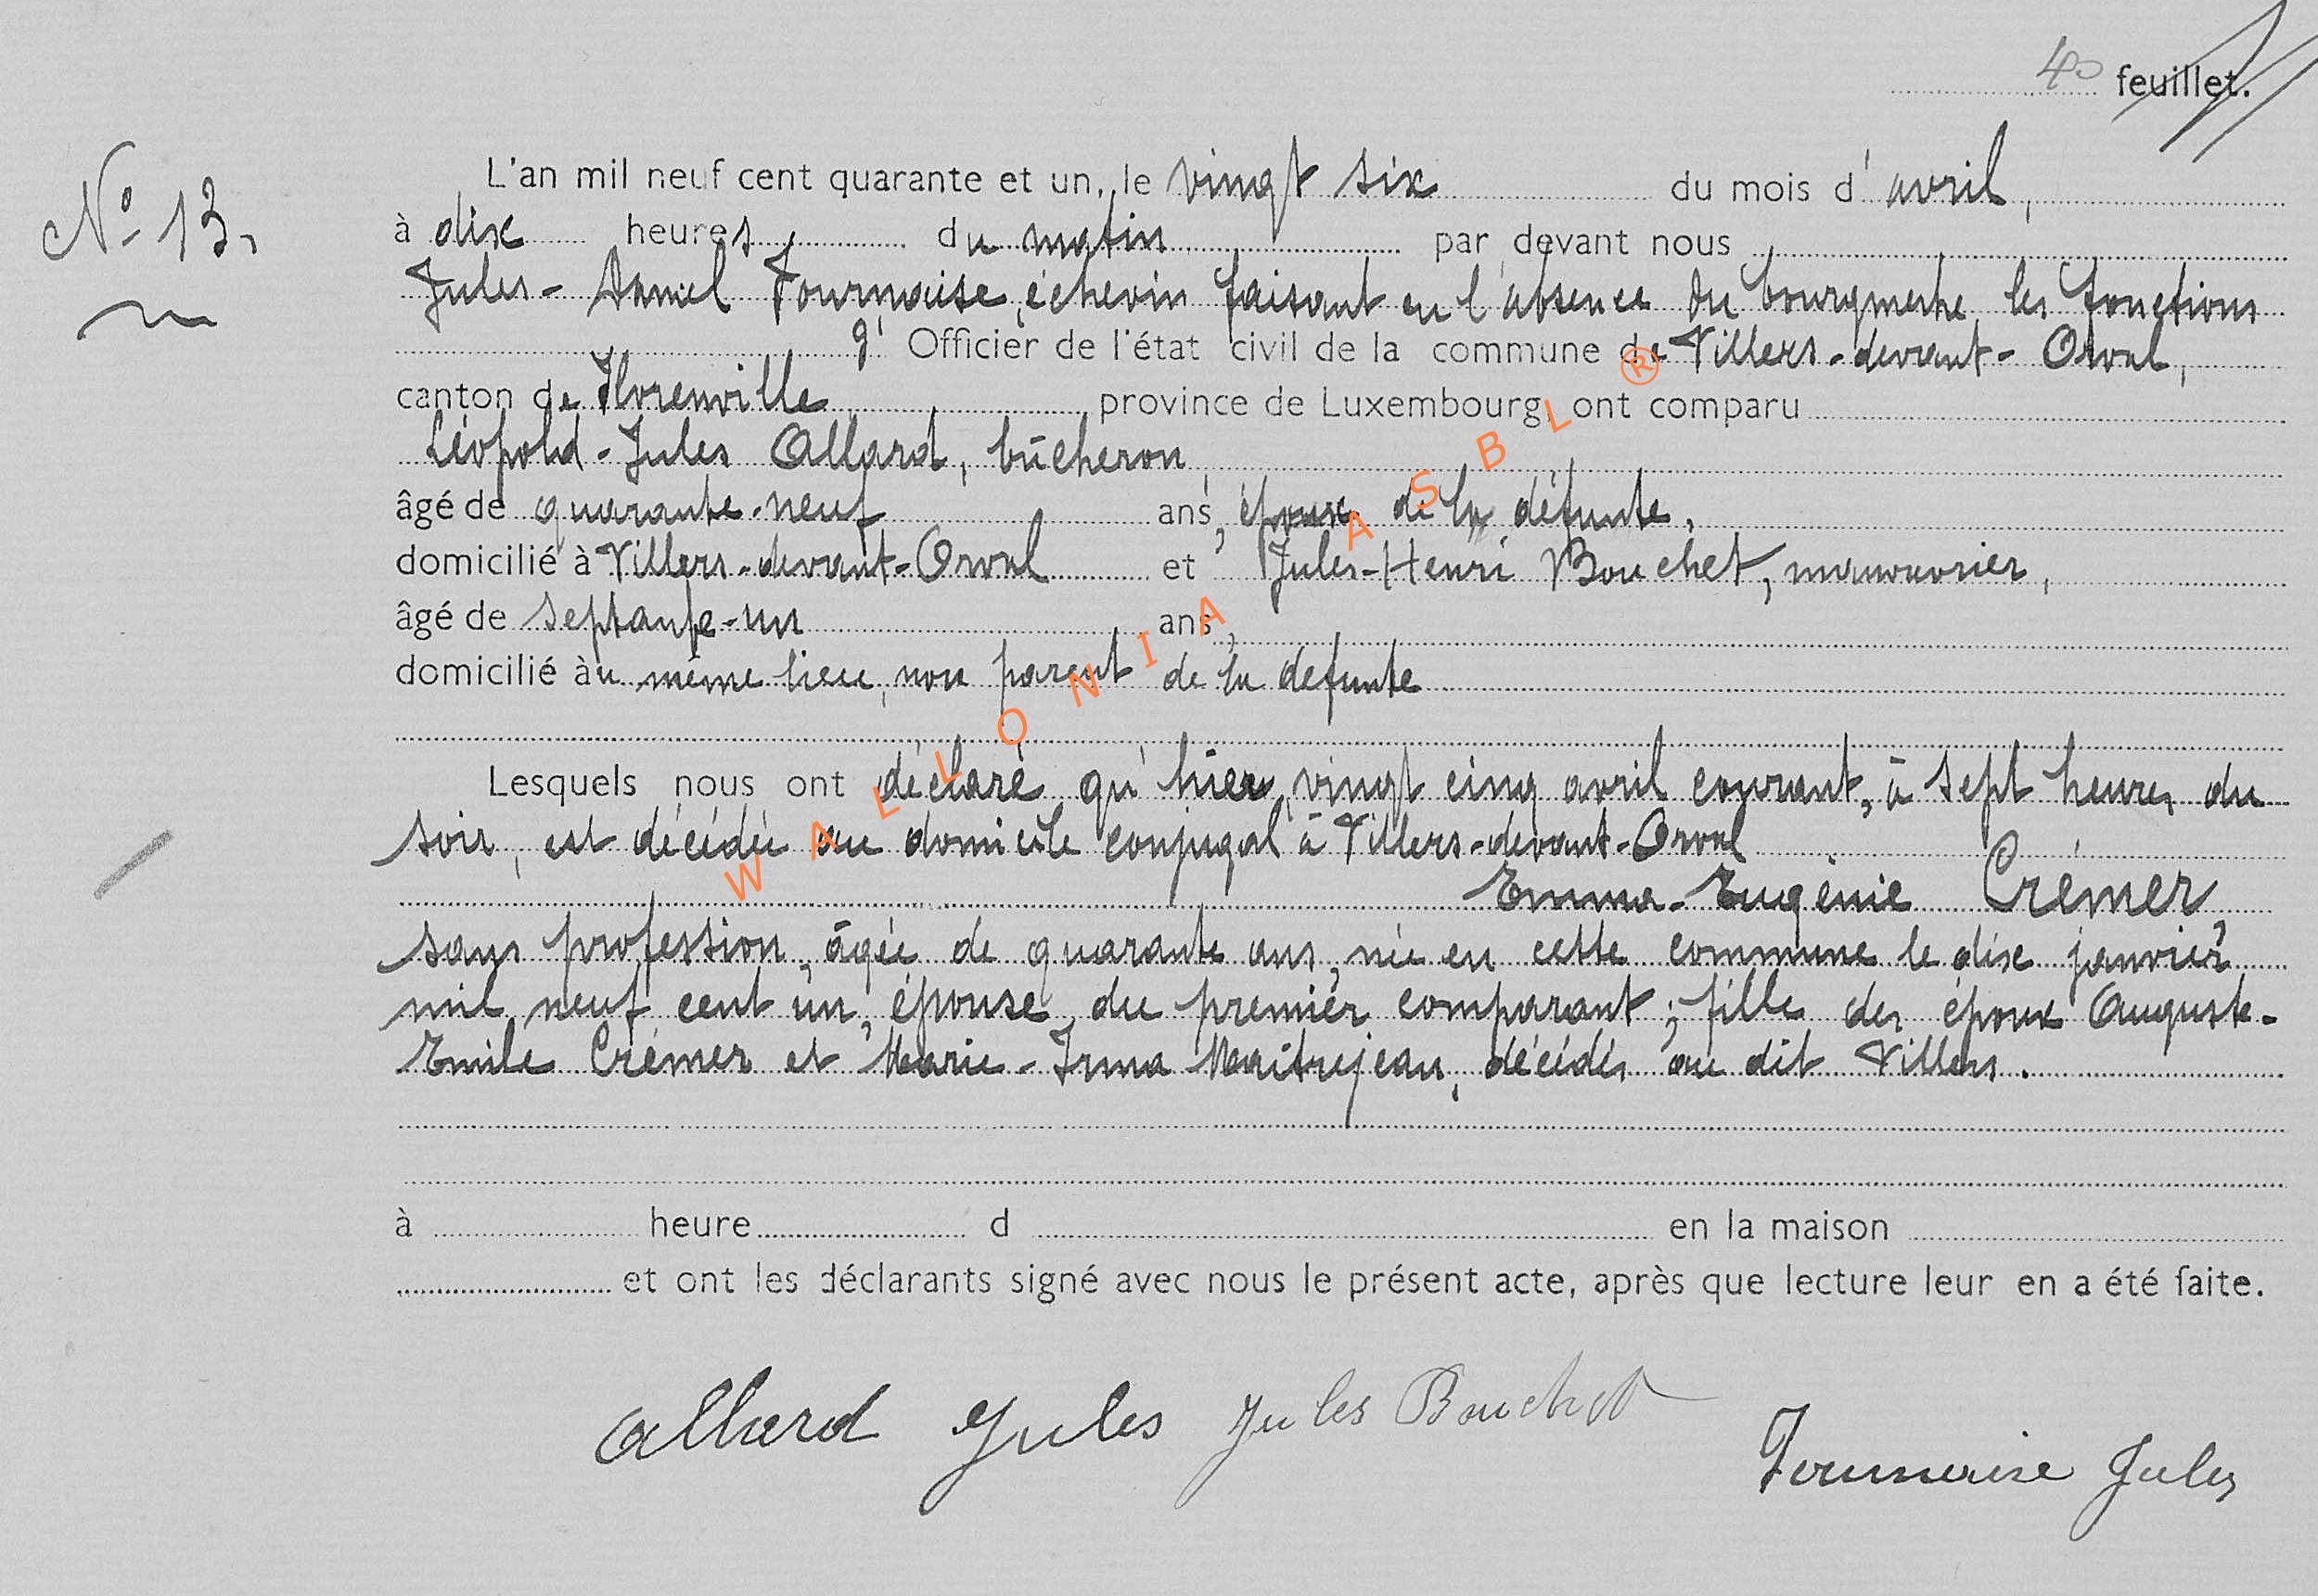 40 feuillet.
N° 13.
L'an mil neuf cent quarante et un, le vingt six du mois d'avril,
à dix heures du matin par devant nous
Jules-Daniel Fournaise, échevin faisant en l'absence du bourgmestre les fonctions
d'Officier de l'état civil de la commune de Villers-devant-Orval,
canton de Florenville province de Luxembourg, ont comparu
Léopold-Jules Allard, bûcheron
âgé de quarante-neuf ans, époux de la défunte,
domicilié à Villers-devant-Orval et Jules-Henri Bouchet, manouvrier,
âgé de septante-un ans,
domicilié au même lieu, non parent de la défunte
Lesquels nous ont déclaré qu'hier, vingt cinq avril courant, à sept heures du
soir, est décédée au domicile conjugal à Villers-devant-Orval
Emma-Eugénie Crémer,
sans profession, âgée de quarante ans, née en cette commune le dix janvier
mil neuf cent un, épouse du premier comparant; fille des époux Auguste-
Emile Crémer et Marie-Irma Maitrejean, décédés au dit Villers.
à heure d en la maison
et ont les déclarants signé avec nous le présent acte, après que lecture leur en a été faite.
Allard Jules Jules Bouchet
Fournaise Jules
WALLONIA ASBL ®